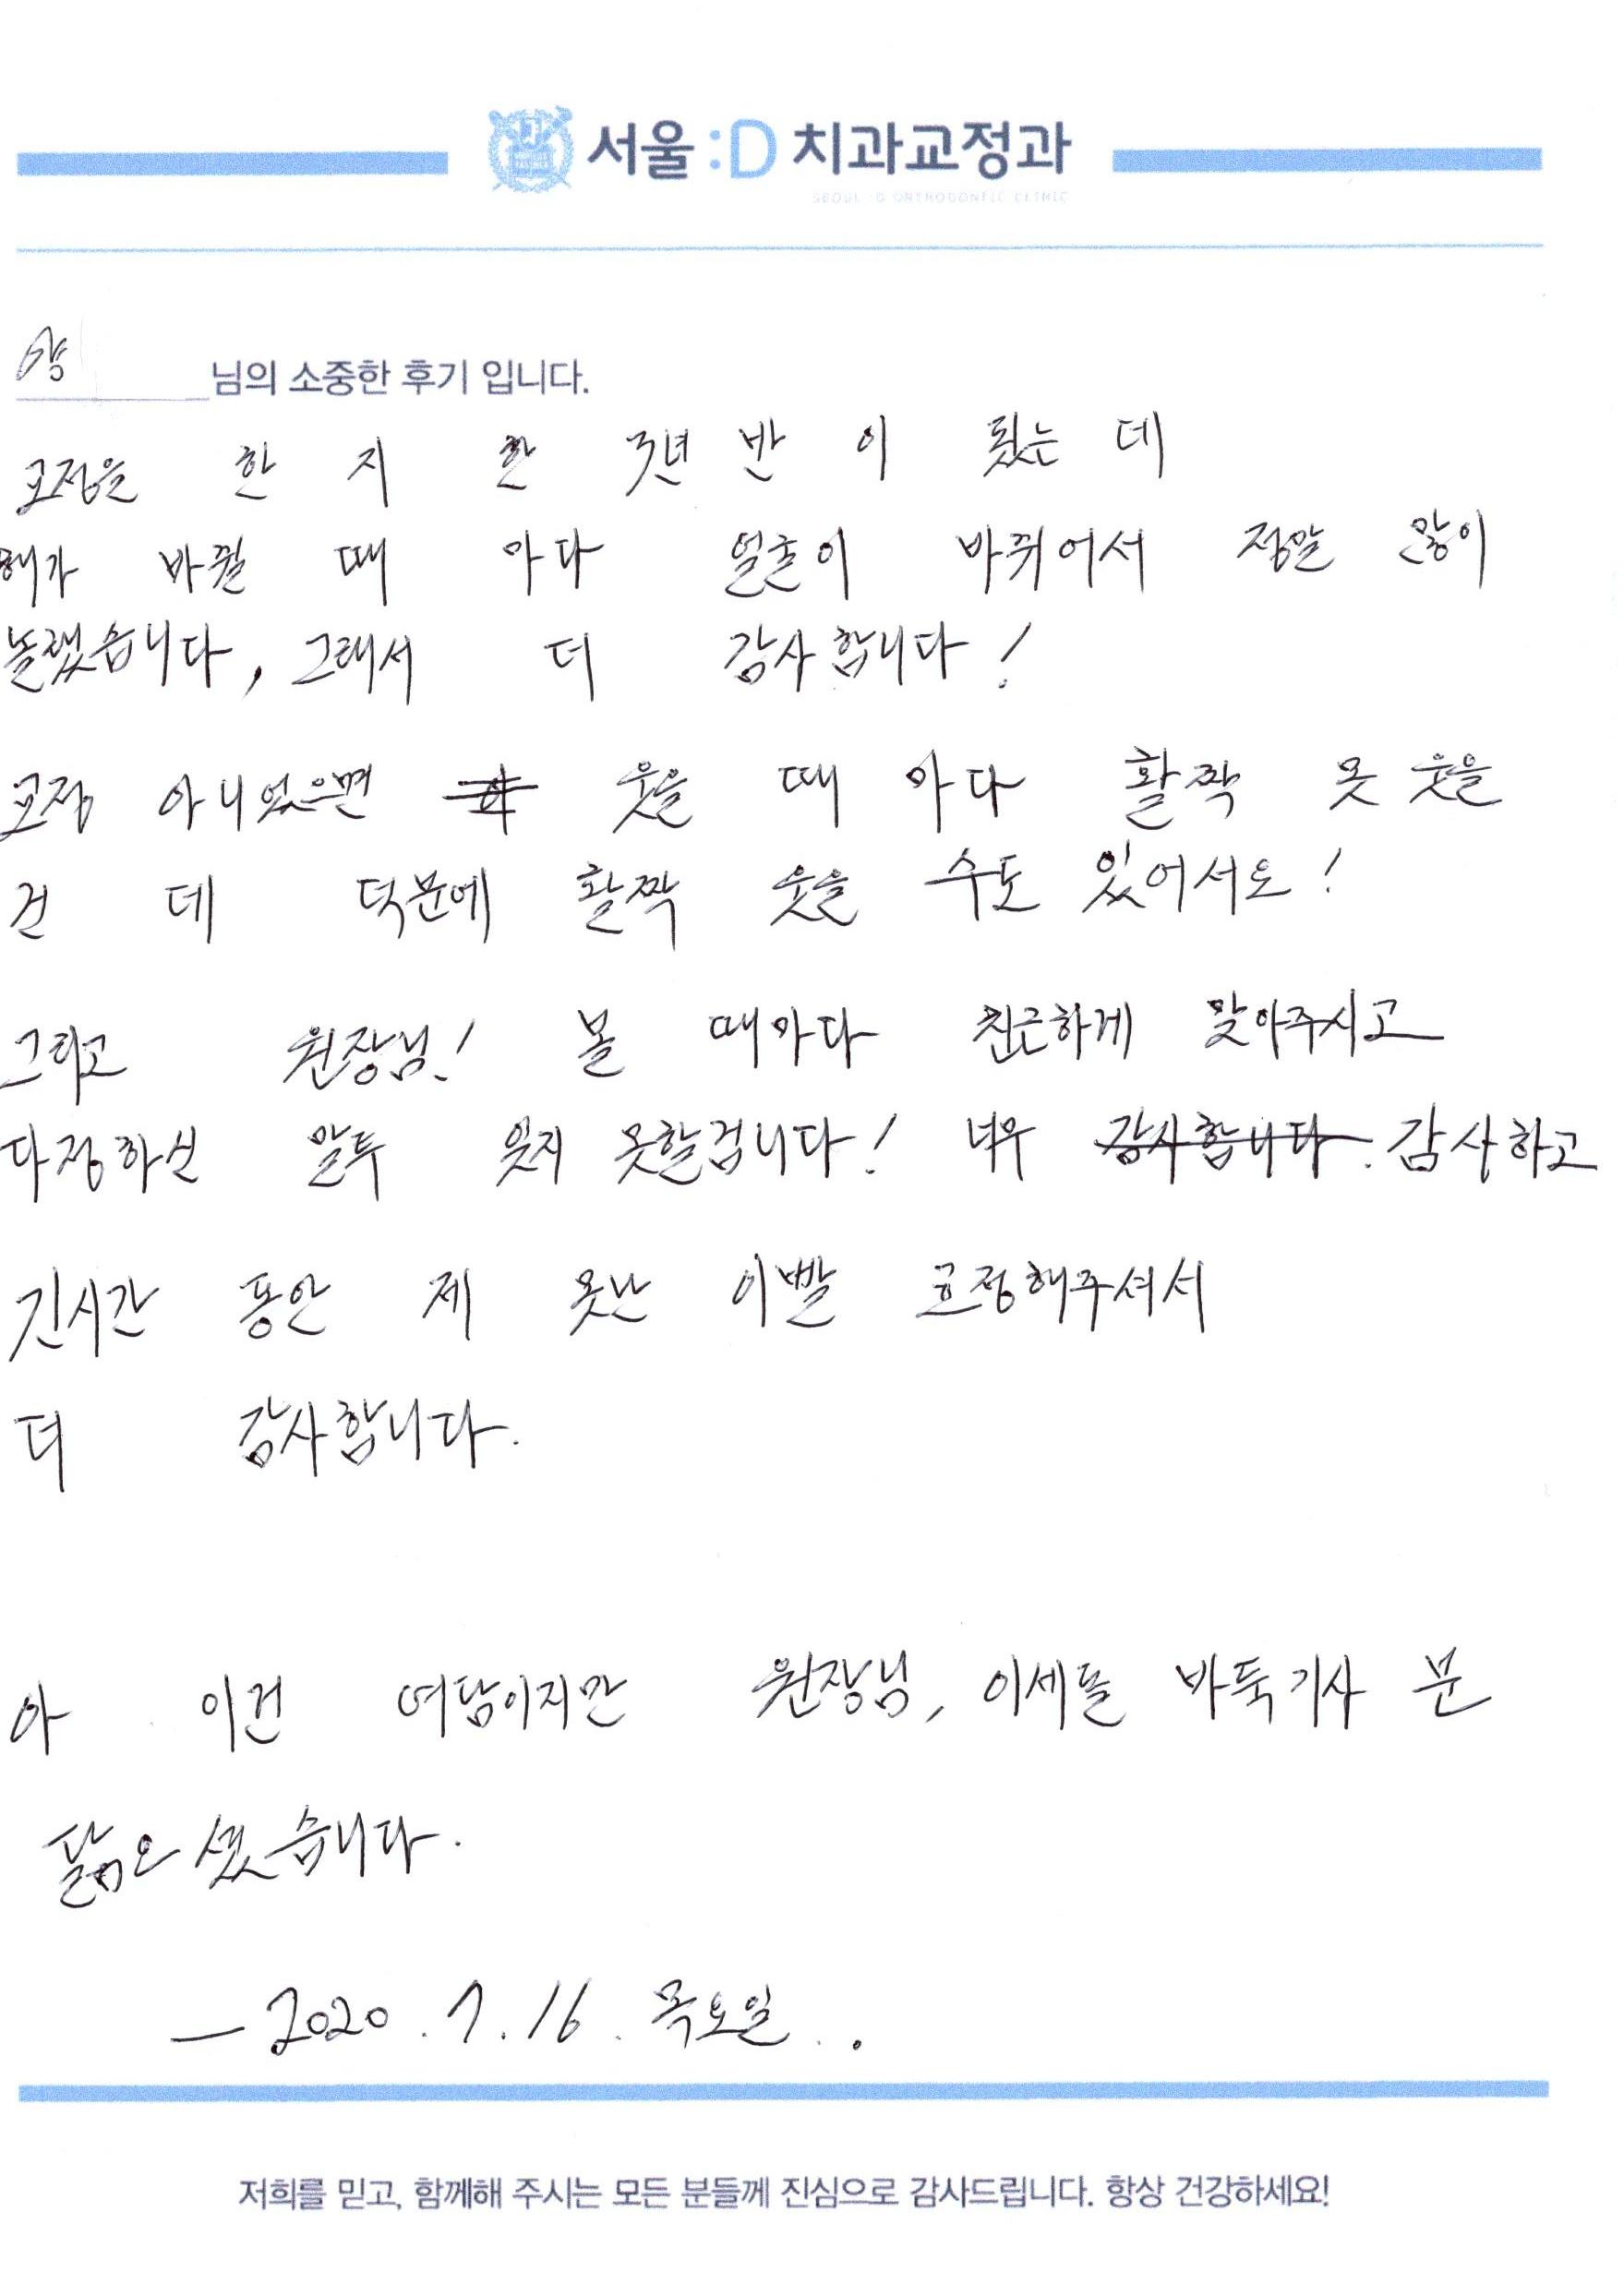 서울 :D 치과교정과
SEOUL :D ORTHODONTIC CLINIC
양 님의 소중한 후기 입니다.
교정을 한 지 한 3년 반 이 됬는 데
해가 바뀔 때 마다 얼굴이 바뀌어서 정말 많이
놀랬습니다, 그래서 더 감사합니다!
교정 아니었으면 웃을 때 마다 활짝 못 웃을
건 데 덕분에 활짝 웃을 수도 있어서요!
그리고 원장님! 볼 때마다 친근하게 맞아주시고
다정하신 말투 잊지 못할겁니다! 너무 감사합니다. 감사하고
긴시간 동안 제 못난 이빨 교정해주셔서
더 감사합니다.
아 이건 여담이지만 원장님, 이세돌 바둑기사 분
닮으셨습니다.
— 2020. 7. 16. 목요일..
저희를 믿고, 함께해 주시는 모든 분들께 진심으로 감사드립니다. 항상 건강하세요!